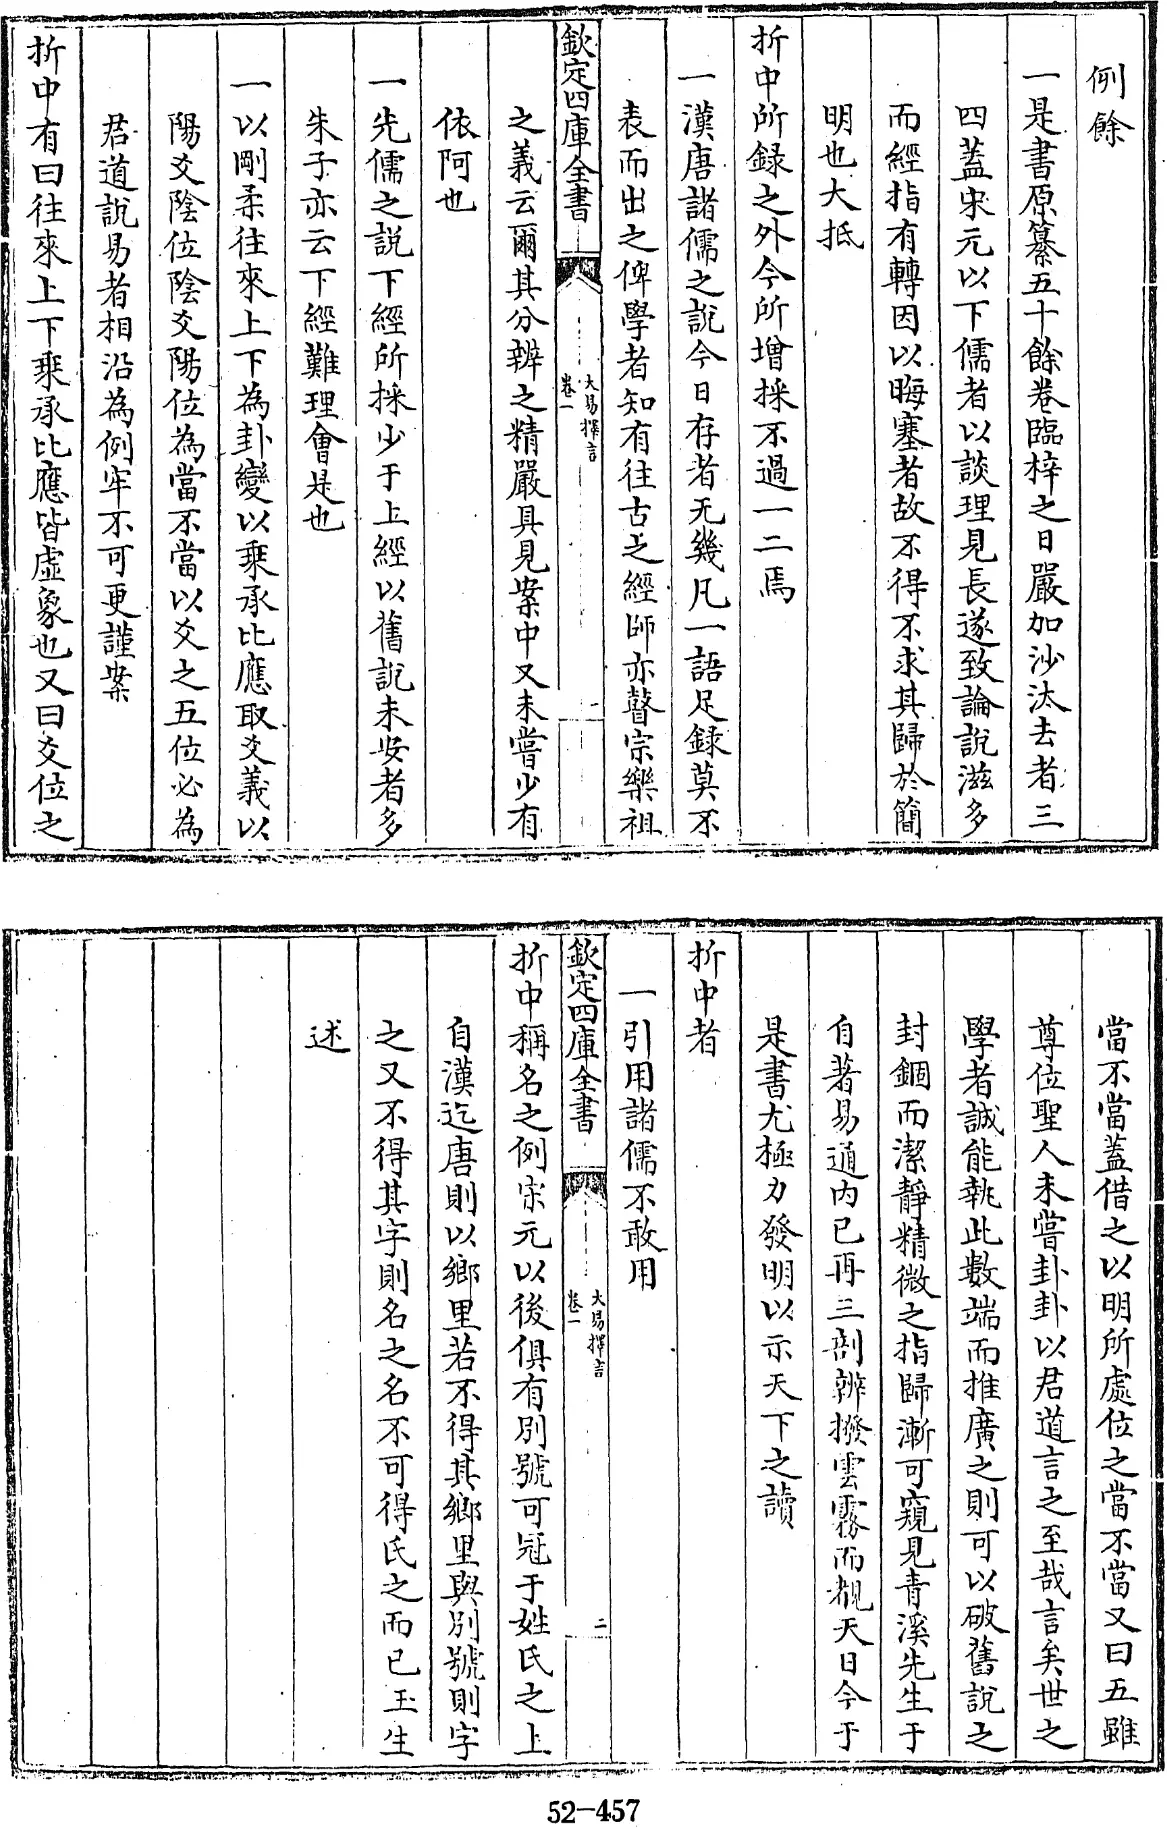 例餘
一是書原纂五十餘卷臨梓之日嚴加沙汰去者三
四蓋宋元以下儒者以談理見長遂致論說滋多
而經指有轉因以晦塞者故不得不求其歸於簡
明也大抵
折中所録之外今所增採不過一二焉
一漢唐諸儒之說今日存者无幾凡一語足録莫不
表而出之俾學者知有往古之經師亦瞽宗樂祖
欽定四庫全書
大易擇言
卷一
一
之義云爾其分辨之精嚴具見案中又未嘗少有
依阿也
一先儒之說下經所採少于上經以舊說未安者多
朱子亦云下經難理會是也
一以剛柔往來上下為卦變以乘承比應取爻義以
陽爻陰位陰爻陽位為當不當以爻之五位必為
君道說易者相沿為例牢不可更謹案
折中有曰往來上下乘承比應皆虛象也又曰爻位之
當不當蓋借之以明所處位之當不當又曰五雖
尊位聖人未嘗卦卦以君道言之至哉言矣世之
學者誠能執此數端而推廣之則可以破舊說之
封錮而潔靜精微之指歸漸可窺見青溪先生于
自著易通內已再三剖辨撥雲霧而覩天日今于
是書尤極力發明以示天下之讀
折中者
一引用諸儒不敢用
欽定四庫全書
大易擇言
卷一
二
折中稱名之例宋元以後俱有別號可冠于姓氏之上
自漢迄唐則以鄉里若不得其鄉里與別號則字
之又不得其字則名之名不可得氏之而已玉生
述
52-457